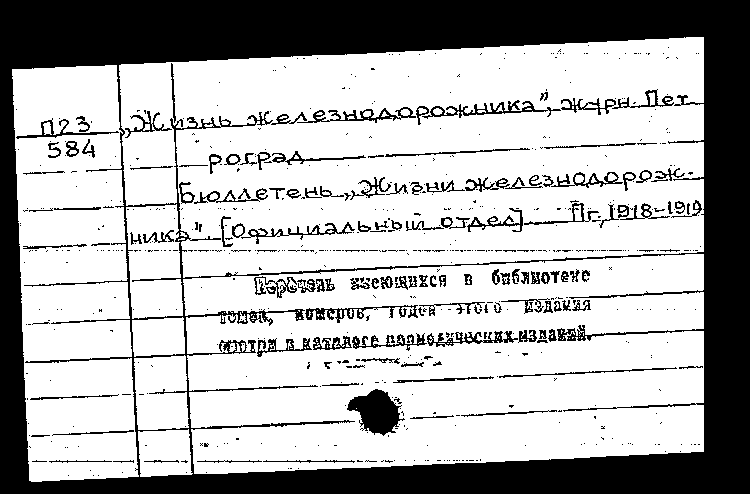 П23 „Жизнь железнодорожника", журн. Пет
584 роград
Бюллетень „Жизни железнодорож-
ника". [Официальный отдел] Пг., 1918-1919
Перечень имеющихся в библиотеке
томов, номеров, годов этого издания
смотри в каталоге периодических изданий.